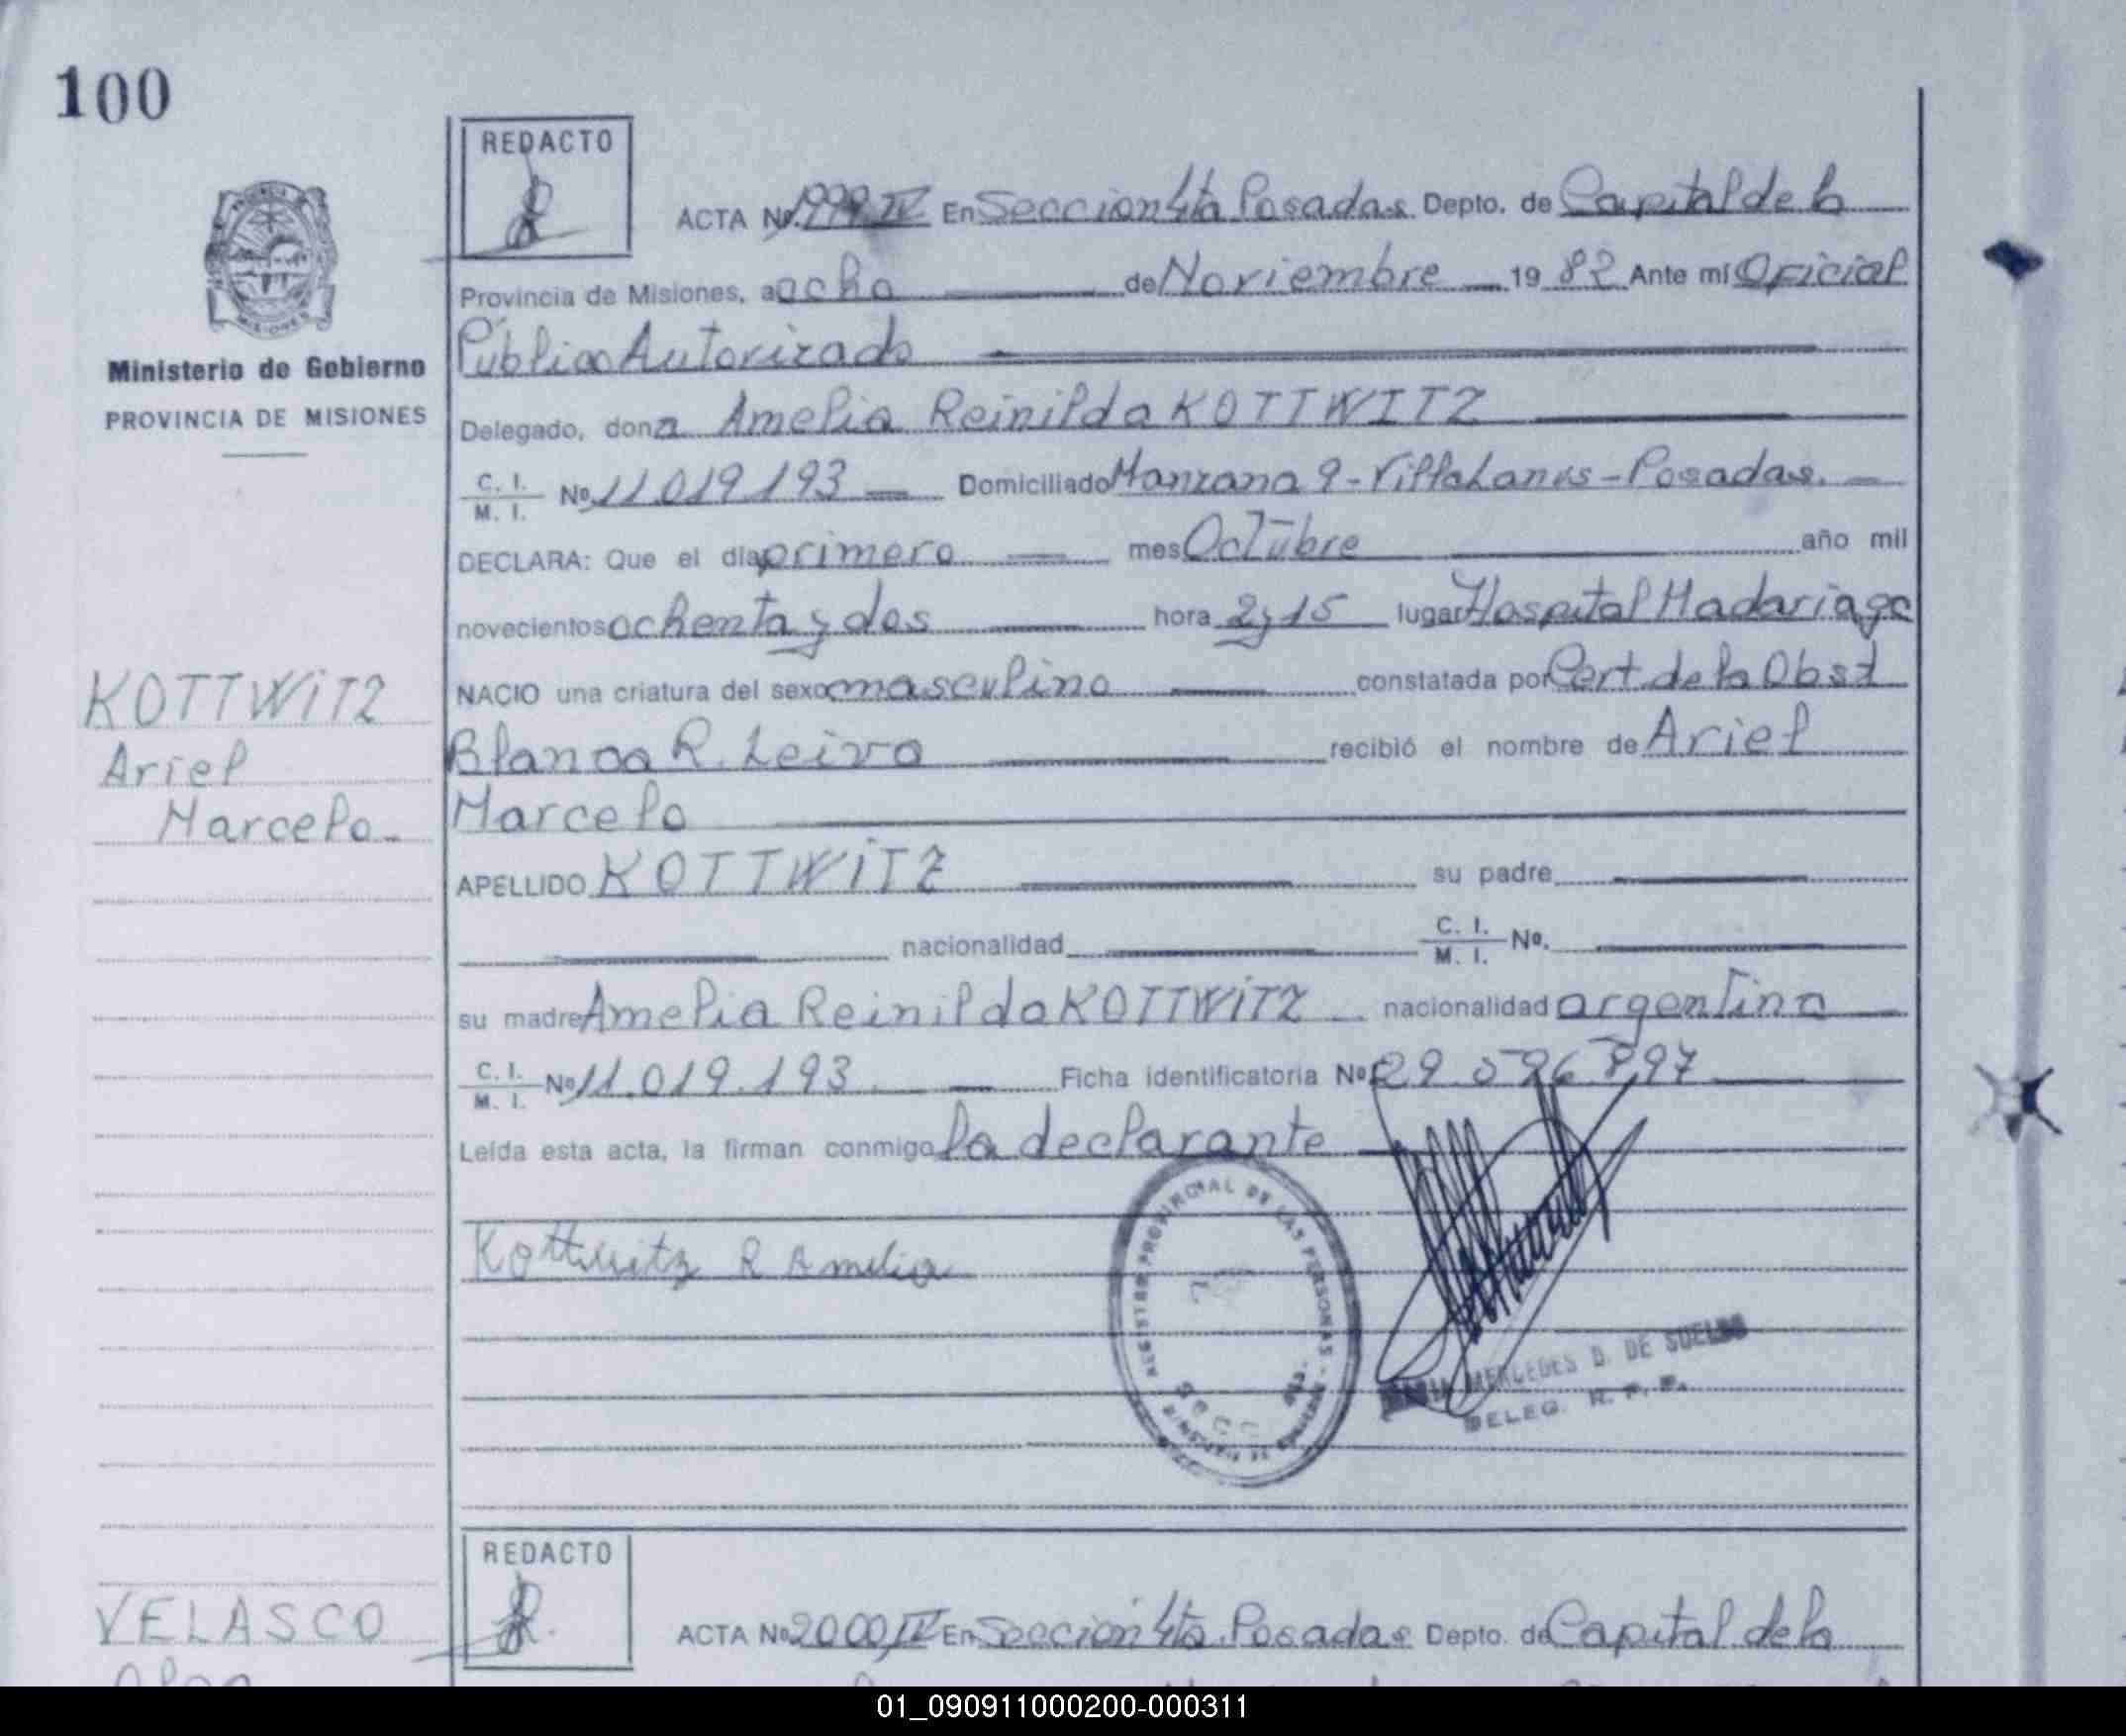 100
REDACTO
ACTA Nº 1999 IV En Seccion 4ta Posadas Depto. de Capital de la
Provincia de Misiones, a ocho de Noviembre 19 82 Ante mí Oficial
Público Autorizado
Ministerio de Gobierno
PROVINCIA DE MISIONES
Delegado, don a Amelia Reinilda KOTTWITZ
C. I. M. I. Nº 11.019.193 Domiciliado Manzana 9 - Villa Lanús - Posadas.
DECLARA: Que el día primero mes Octubre año mil
novecientos ochenta y dos hora 2,15 lugar Hospital Madariaga
KOTTWITZ
NACIO una criatura del sexo masculino constatada por Cert. de la Obst
Ariel
Blanca R. Leiva recibió el nombre de Ariel
Marcelo
Marcelo
APELLIDO KOTTWITZ su padre
nacionalidad C. I. M. I. Nº.
su madre Amelia Reinilda KOTTWITZ nacionalidad argentina
C. I. M. I. Nº 11.019.193 Ficha identificatoria Nº 29.596.897
Leída esta acta, la firman conmigo la declarante
Kottwitz R Amelia
REGISTRO PROVINCIAL DE LAS PERSONAS
SECC 4ta.
MERCEDES B. DE
DELEG. R. P. P.
REDACTO
VELASCO
ACTA Nº 2000 IV En Seccion 4ta Posadas Depto. de Capital de la
01_090911000200-000311